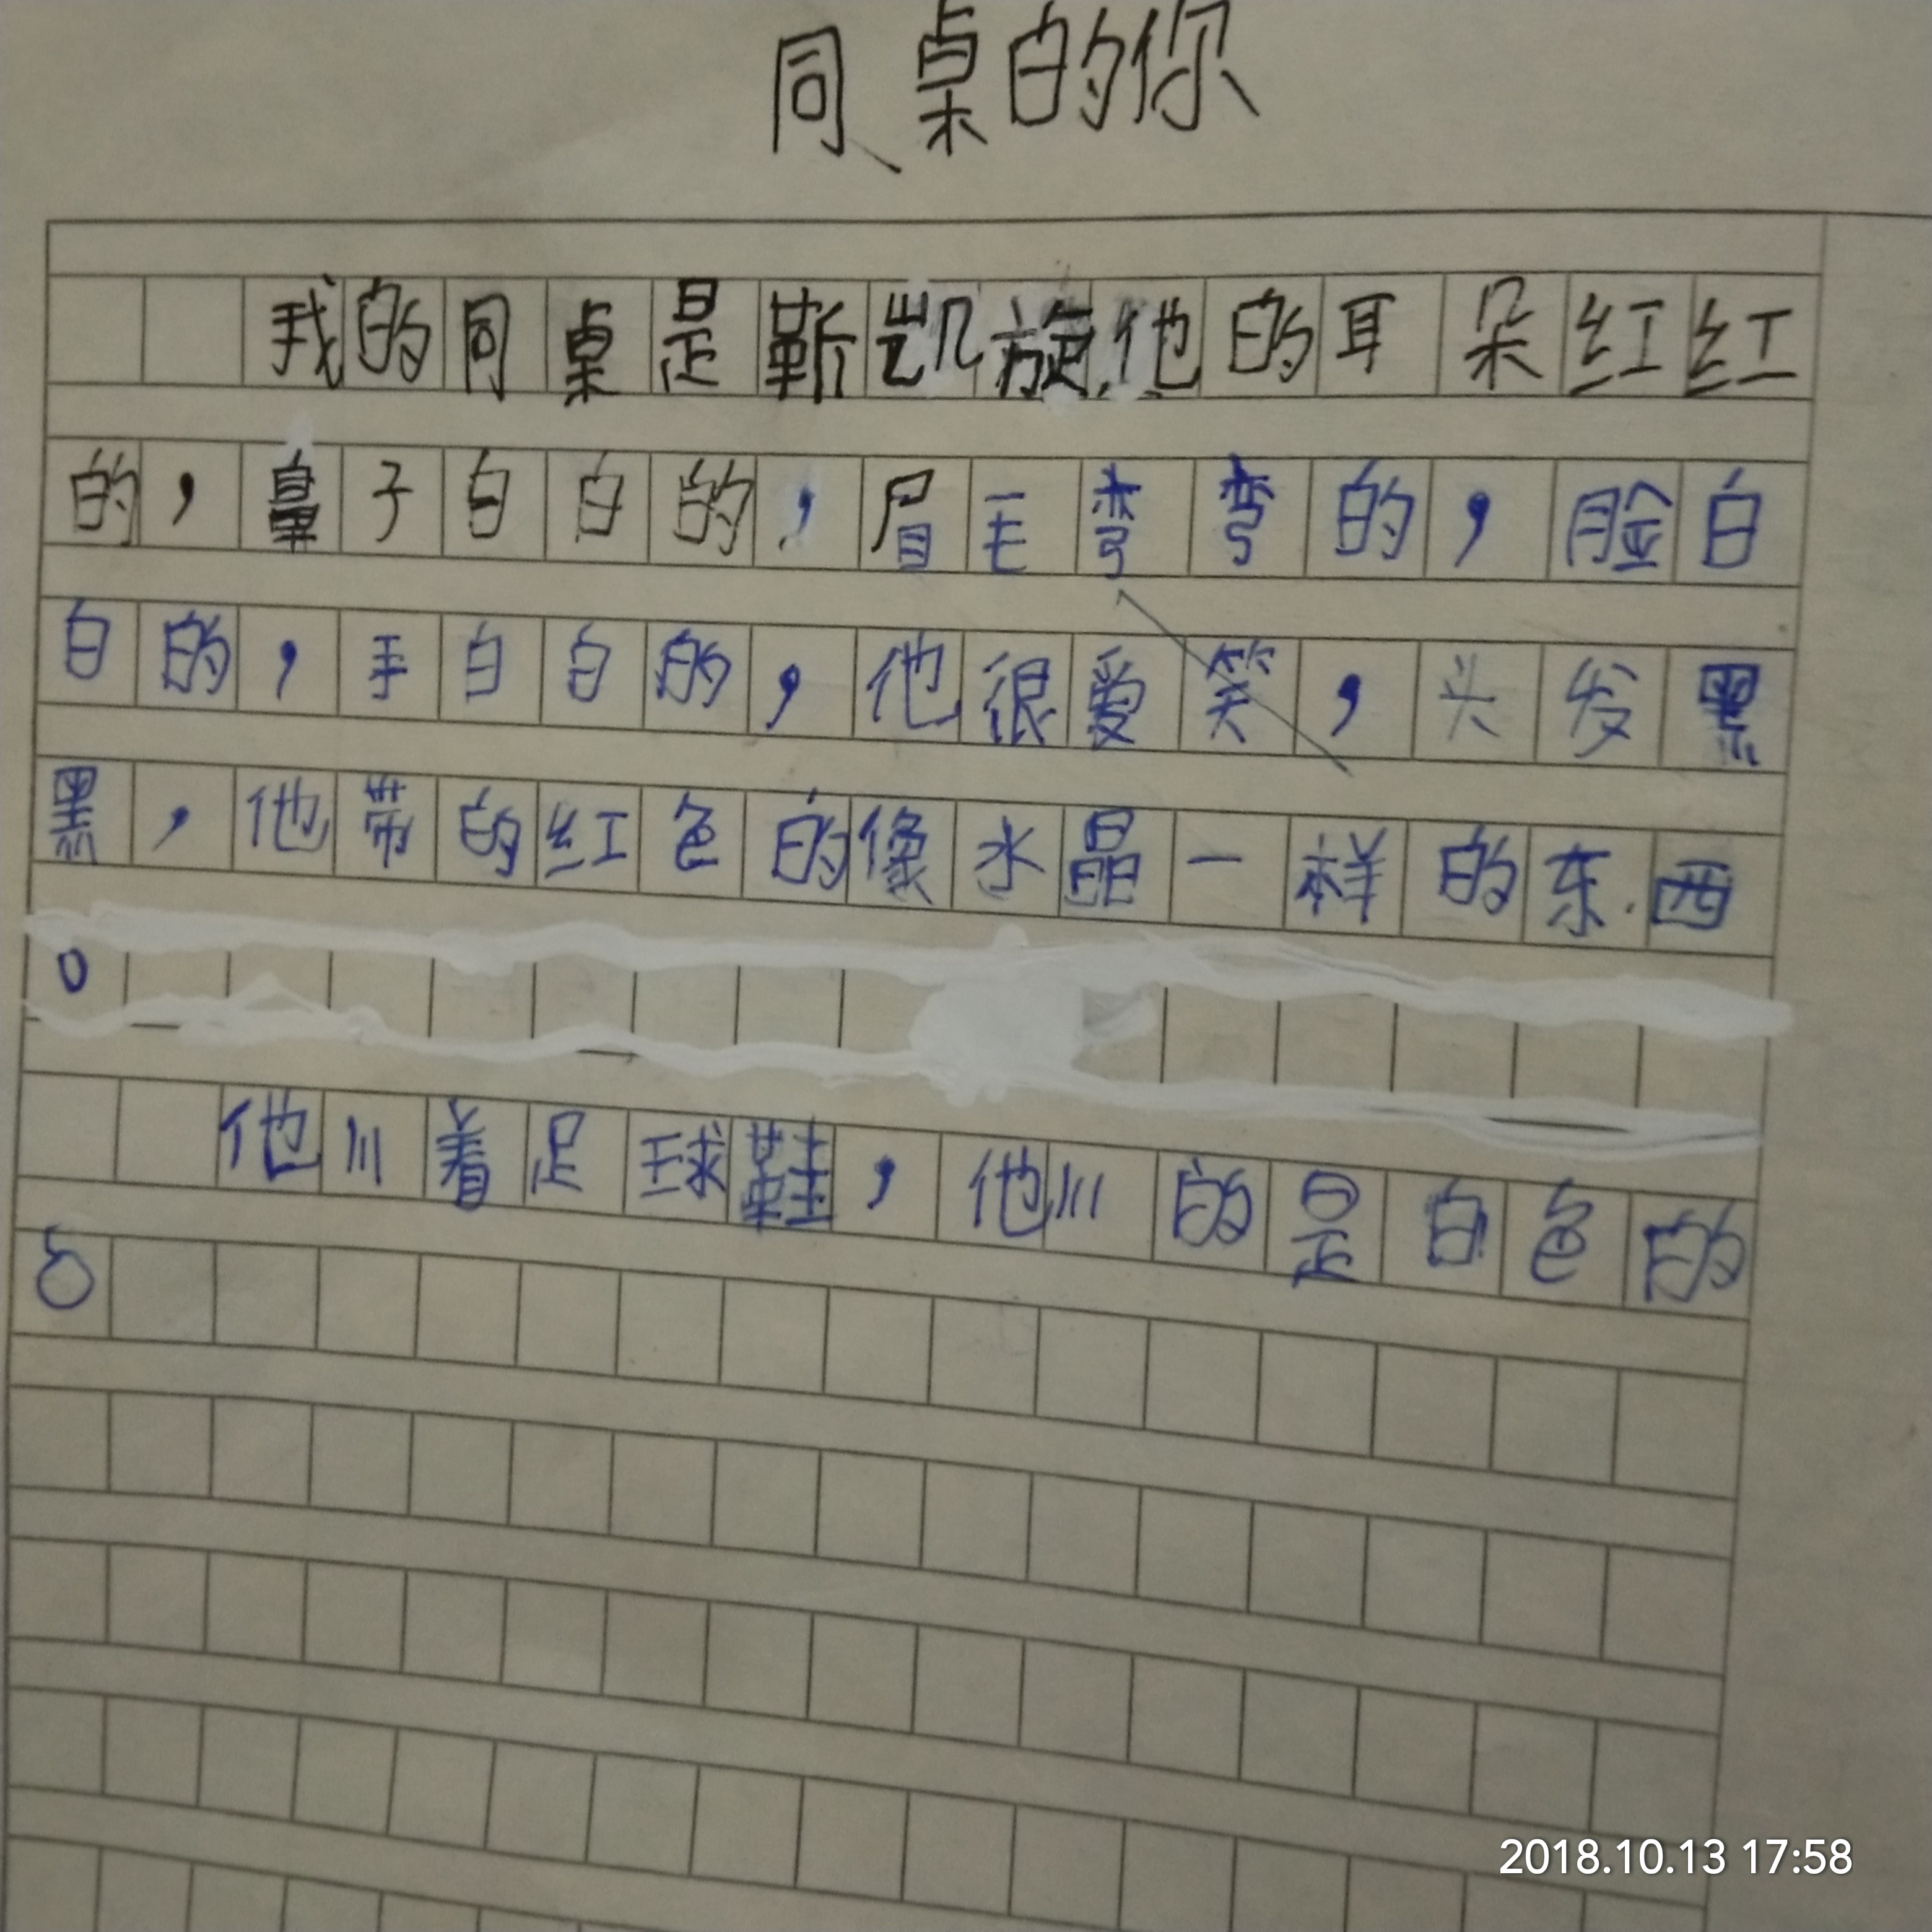 同桌的你
我的同桌是靳凯旋,他的耳朵红红
的,鼻子白白的,眉毛弯弯的,脸白
白的,手白白的,他很爱笑,头发黑
黑,他带的红色的像水晶一样的东西
。
他川着足球鞋,他川的是白色的
。
2018.10.13 17:58